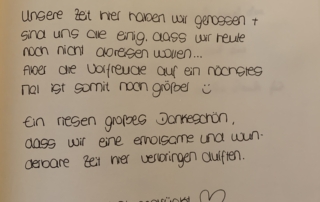 Unsere Zeit hier haben wir genossen +
sind uns alle einig, dass wir heute
noch nicht abreisen wollen...
Aber die Vorfreude auf ein nächstes
Mal ist somit noch größer ☺
Ein riesen großes Dankeschön,
dass wir eine erholsame und wun-
derbare Zeit hier verbringen durften.